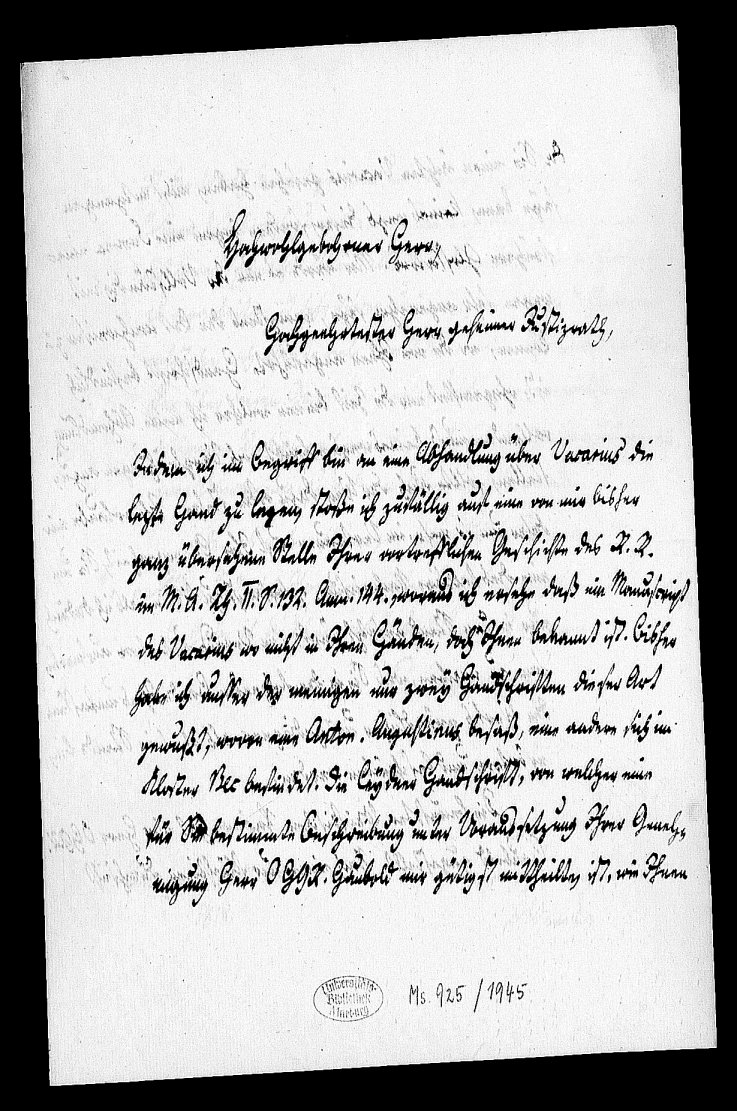 Hochwohlgebohrner Herr,
Hochgeehrtester Herr geheimer Justizrath,
Indem ich im Begriff bin an eine Abhandlung über Vacarius die
lezte Hand zu legen, stoße ich zufällig auf eine von mir bisher
ganz übersehene Stelle Ihrer vortrefflichen Geschichte des R. R.
im M. A. Th. II. S. 132. Anm. 144. woraus ich ersehe daß ein Manuscript
des Vacarius wo nicht in Ihren Händen, doch Ihnen bekannt ist. Bisher
habe ich ausser der meinigen nur zwey Handschriften dieser Art
gewußt, wovon eine Anton. Augustinus besaß, eine andere sich im
Kloster Bec befindet. Die Leydner Handschrift, von welcher eine
für Sie bestimmte Beschreibung unter Voraussetzung Ihrer Geneh-
migung Herr OHGR. Haubold mir gütigst mittheilte, ist, wie Ihnen
Universitäts-
Bibliothek
Marburg
Ms. 925 / 1945